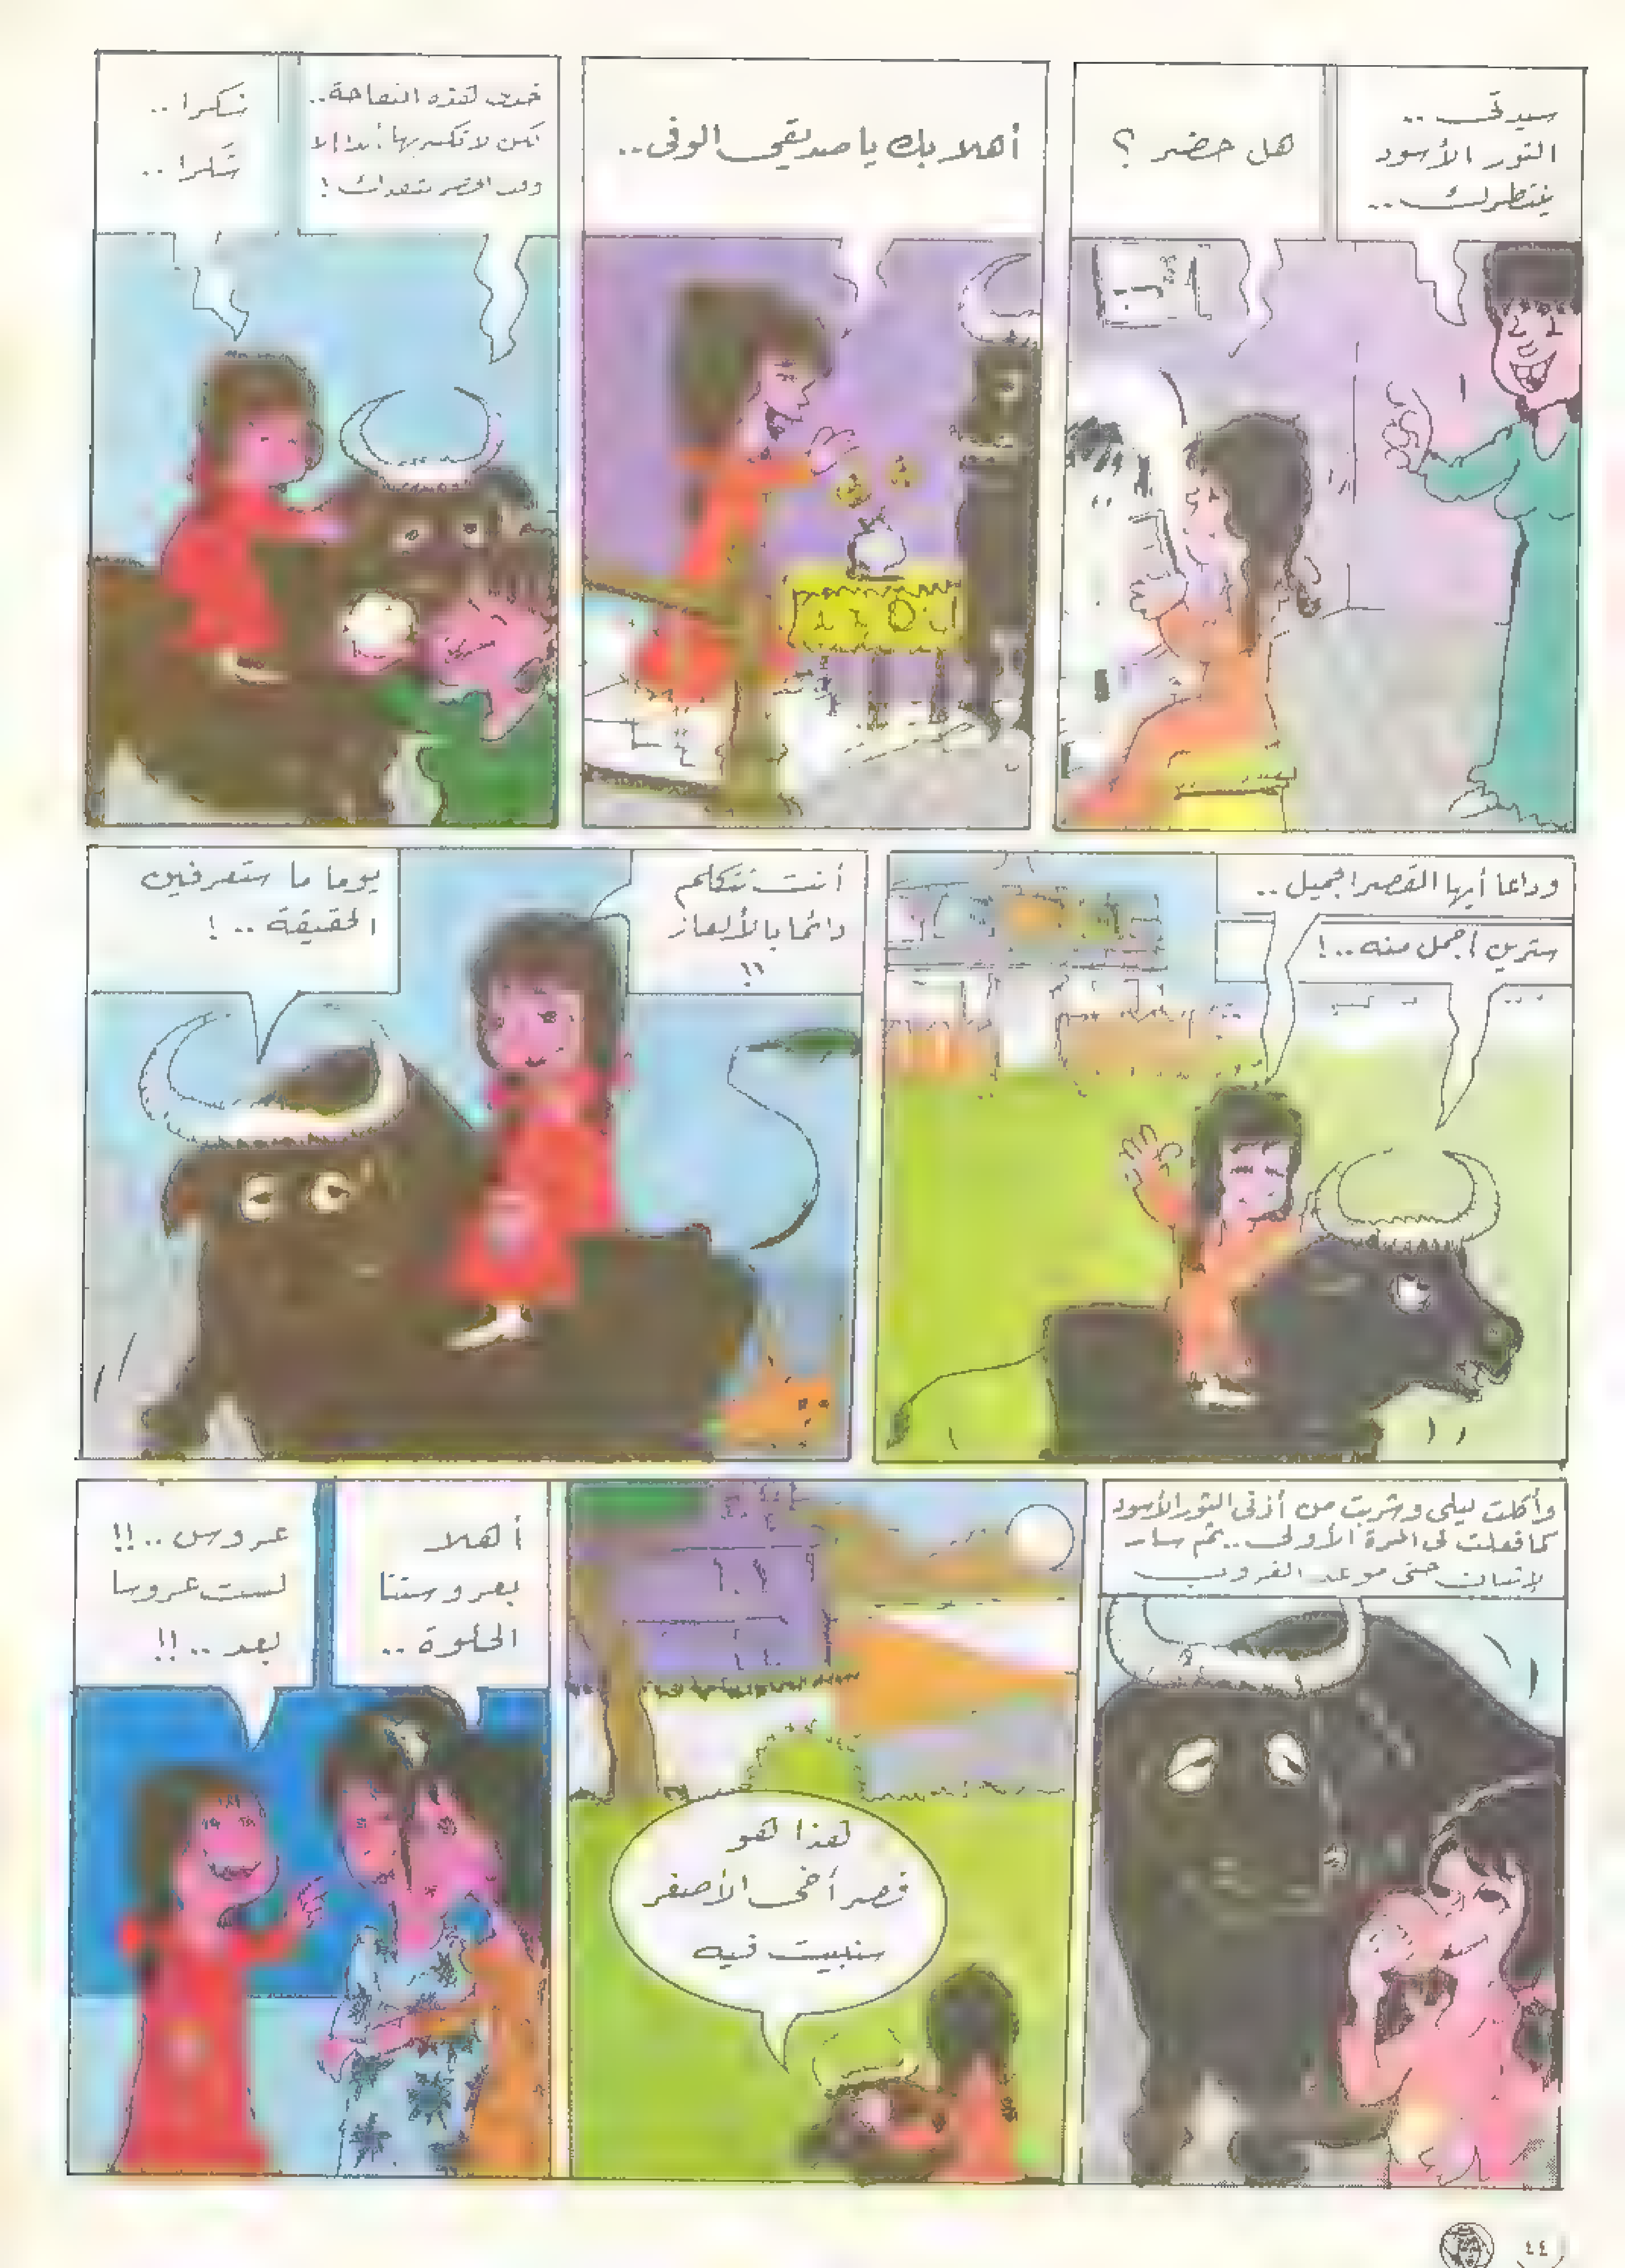 سيدتي ..
الثور الأسود
ينتظرك ..
هل حضر ؟
أهلا بك يا صديقي الوفي ..
خذي هذه التفاحة ..
لكن لا تكسريها أبدا إلا
وقت الخطر
شكرا ..
شكرا ..
وداعا أيها القصر الجميل ..
سترين أجمل منه .. !
أنت تتكلم
دائما بالألغاز
!!
يوما ما ستعرفين
الحقيقة .. !
وأكلت ليلى وشربت من أذني الثور الأسود
كما فعلت في المرة الأولى .. ثم سار
الاثنان حتى موعد الغروب
هذا هو
قصر أخي الأصغر
سنبيت فيه
أهلا
بعروستنا
الحلوة ..
عروس .. !!
لست عروسا
بعد .. !!
٤٤